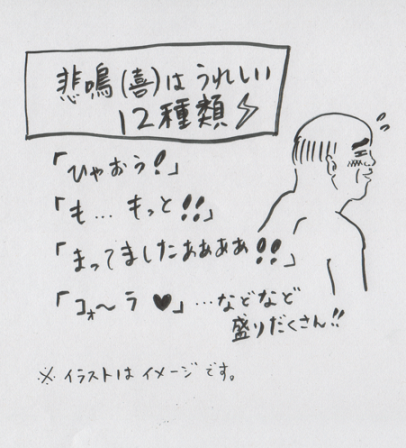 悲鳴(喜)はうれしい
12種類
「ひゃおう!」
「も…もっと!!」
「まってましたあぁあぁ!!」
「コォ〜ラ♥」…などなど
盛りだくさん!!
※イラストはイメージです。